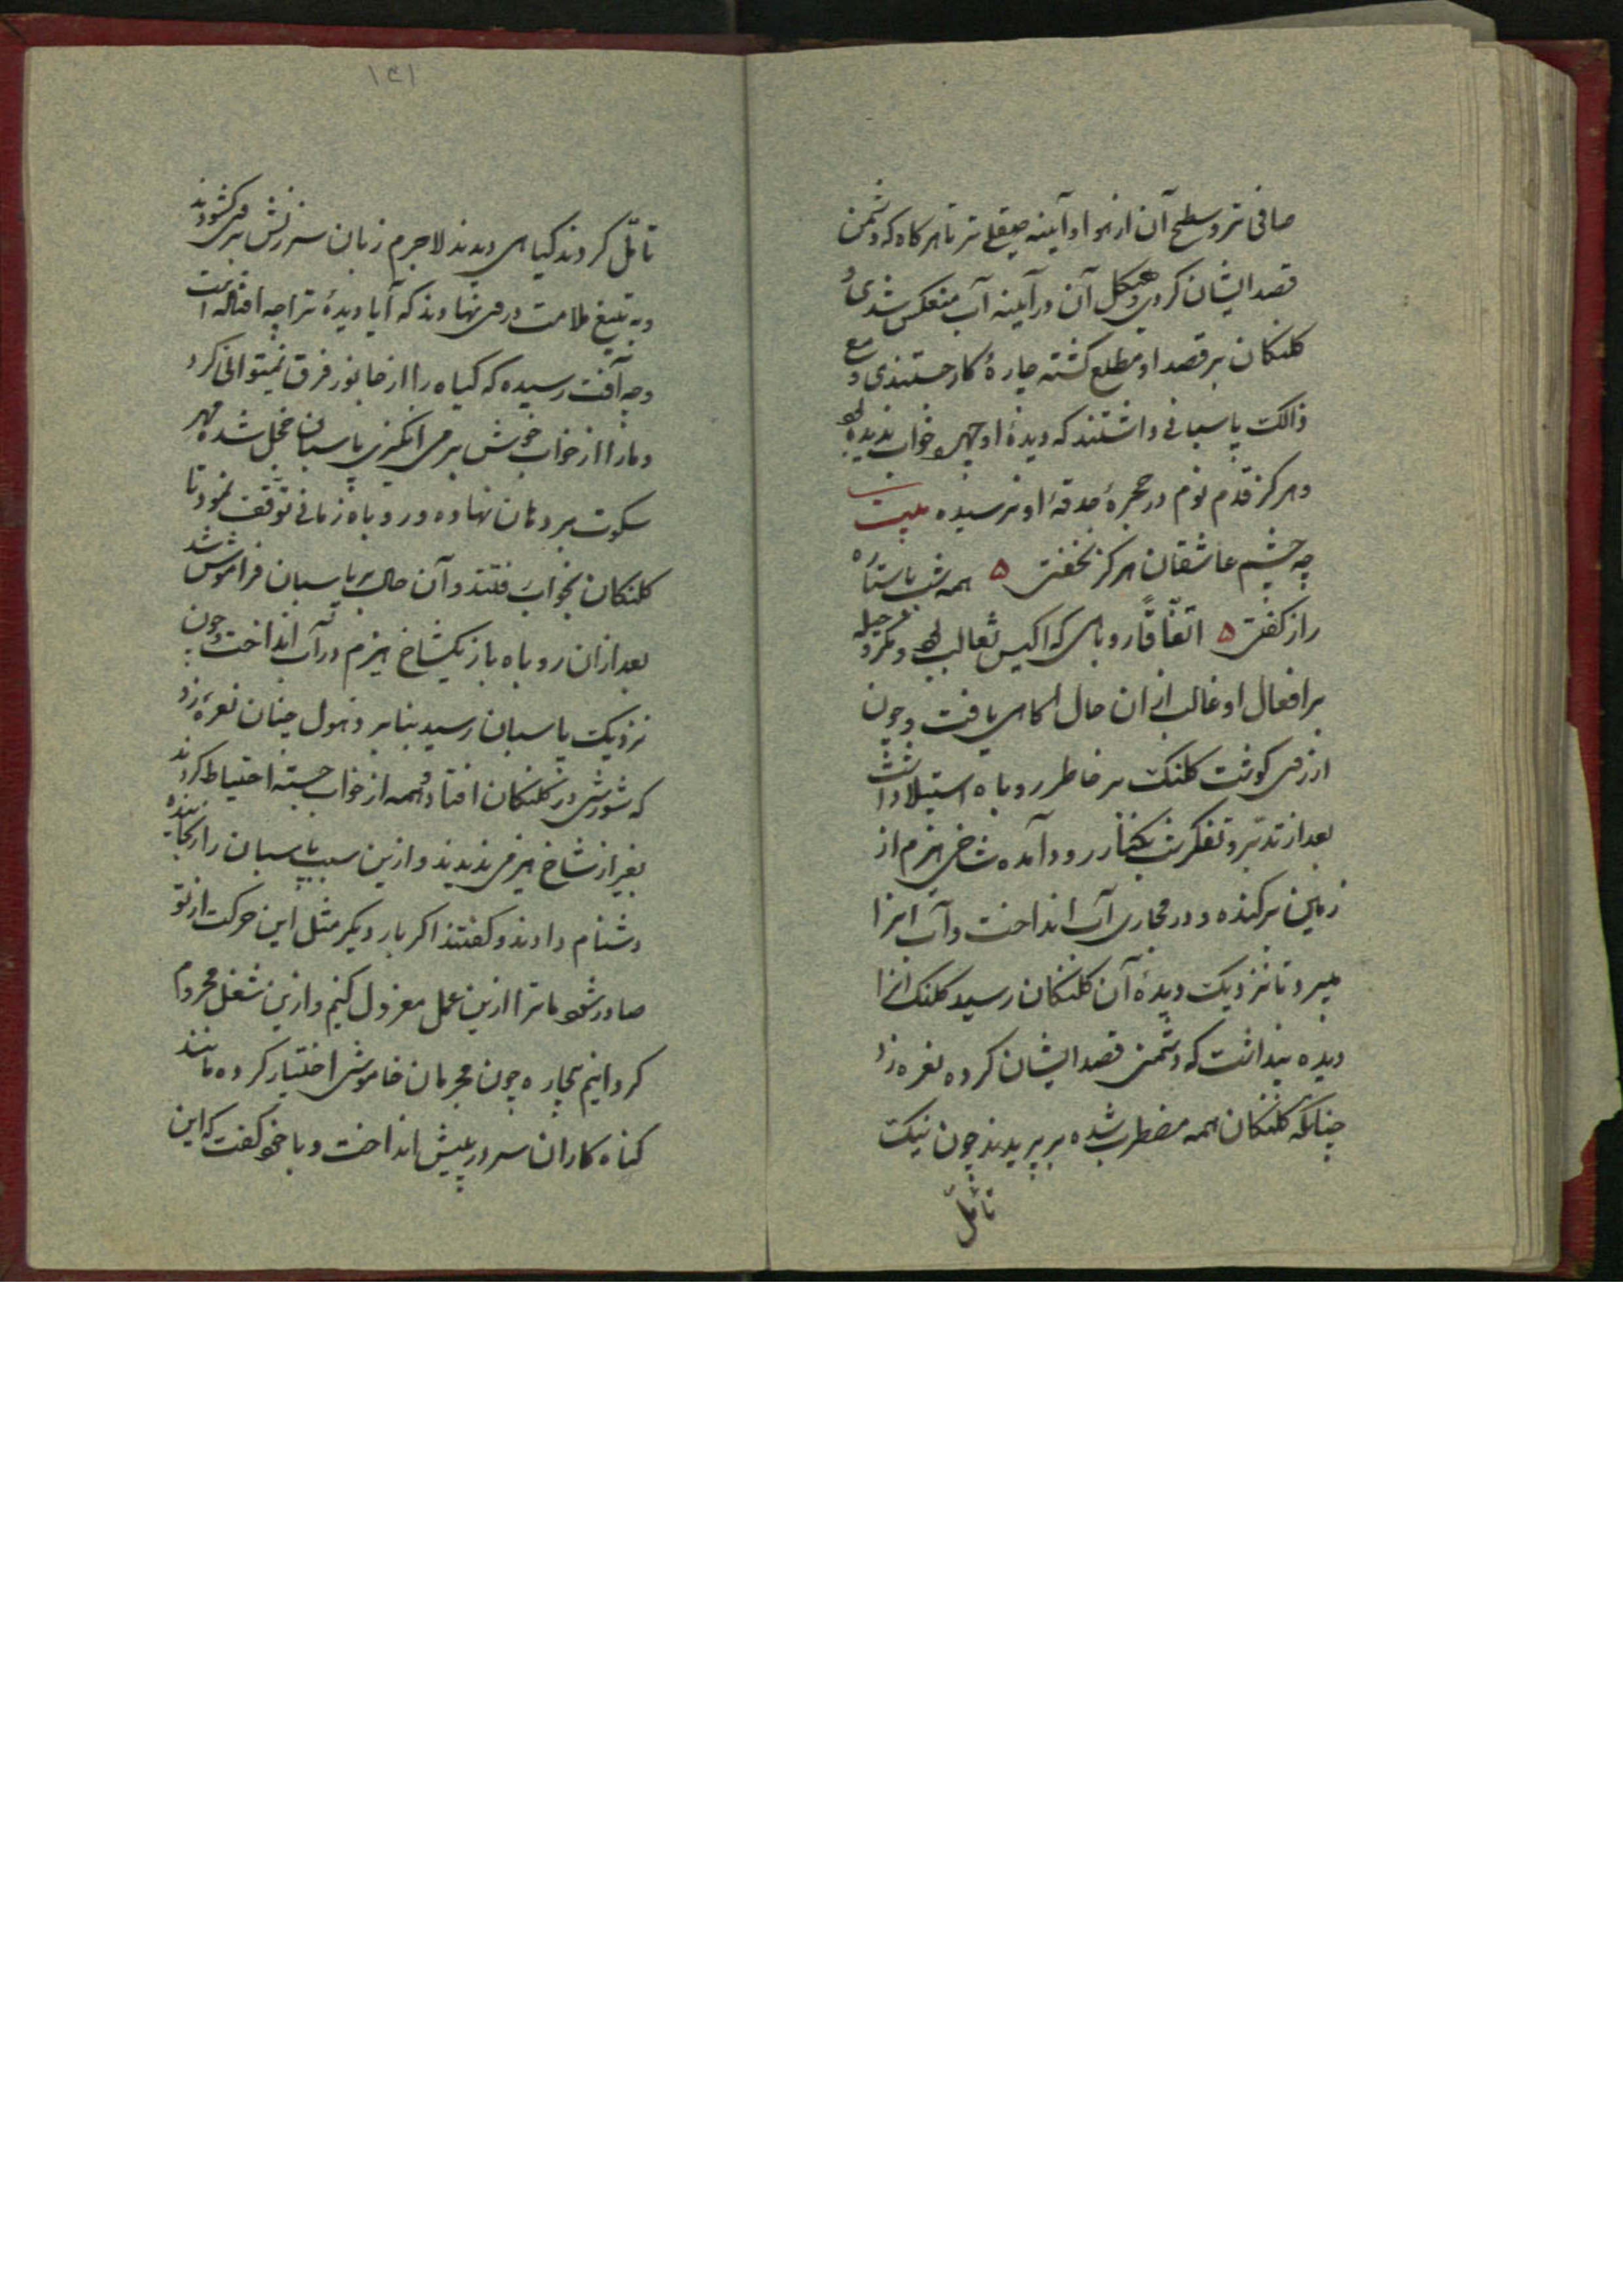 صافی تر و سطح آن از هوا و آیینه صیقلے تر تا هر کاه که دشمن
قصد ایشان کردی و هیکل آن در آیینه آب منعکس شدی و
کلنکان بر قصد او مطلع کشته چارهٔ کار جستندی و مع
ذالک پاسبانی داشتند که دیدهٔ او چهره خواب ندیده
و هر کز قدم نوم در حجرهٔ حدقهٔ او نرسیده بیت
چه چشم عاشقان هر کز نخفتی ۵ همه شب با ستاره
راز کفتی ۵ اتفاقاً روباهی که اکیس ثعالب بود و مکر و حیله
بر افعال او غالب از ان حال اکاهی یافت و چون
ارزوی کوشت کلنک بر خاطر روباه استیلا داشت
بعد از تدبر و تفکر شب بکنار رود آمده شاخی هیزم از
زمین برکنده و در مجاری آب انداخت و آب انرا
میبرد تا نزدیک دیدهٔ آن کلنکان رسید کلنک انرا
دیده پنداشت که دشمنی قصد ایشان کرده نعره زد
چنانکه کلنکان همه مضطرب شده بر پریدند چون نیک
تأمّل
۱۴۱
تأمّل کردند کیاهی دیدند لاجرم زبان سرزنش بر وی کشودند
و به تیغ ملامت در وی نهادند که آیا دیدهٔ ترا چه افتاده است
و چه آفت رسیده که کیاه را از جانور فرق نمیتوانی کرد
و مارا از خواب خوش بر می انکیزی پاسبان خجل شده مهر
سکوت بر دهان نهاده و روباه زمانی توقف نمود تا
کلنکان بخواب رفتند و آن حال بر پاسبان فراموش شد
بعد ازان روباه باز یکشاخ هیزم در آب انداخت و چون
نزدیک پاسبان رسید بنابر ذهول چنان نعرهٔ زد
که شورشی در کلنکان افتاد و همه از خواب جسته احتیاط کردند
بغیر از شاخ هیزمی ندیدند و ازین سبب پاسبان را رنجانیده
دشنام دادند و کفتند اکر بار دیکر مثل این حرکت از تو
صادر شود ما ترا ازین عمل معزول کنیم و ازین شغل محروم
کردانیم بیچاره چون مجرمان خاموشی اختیار کرده مانند
کناه کاران سر در پیش انداخت و با خود کفت که این